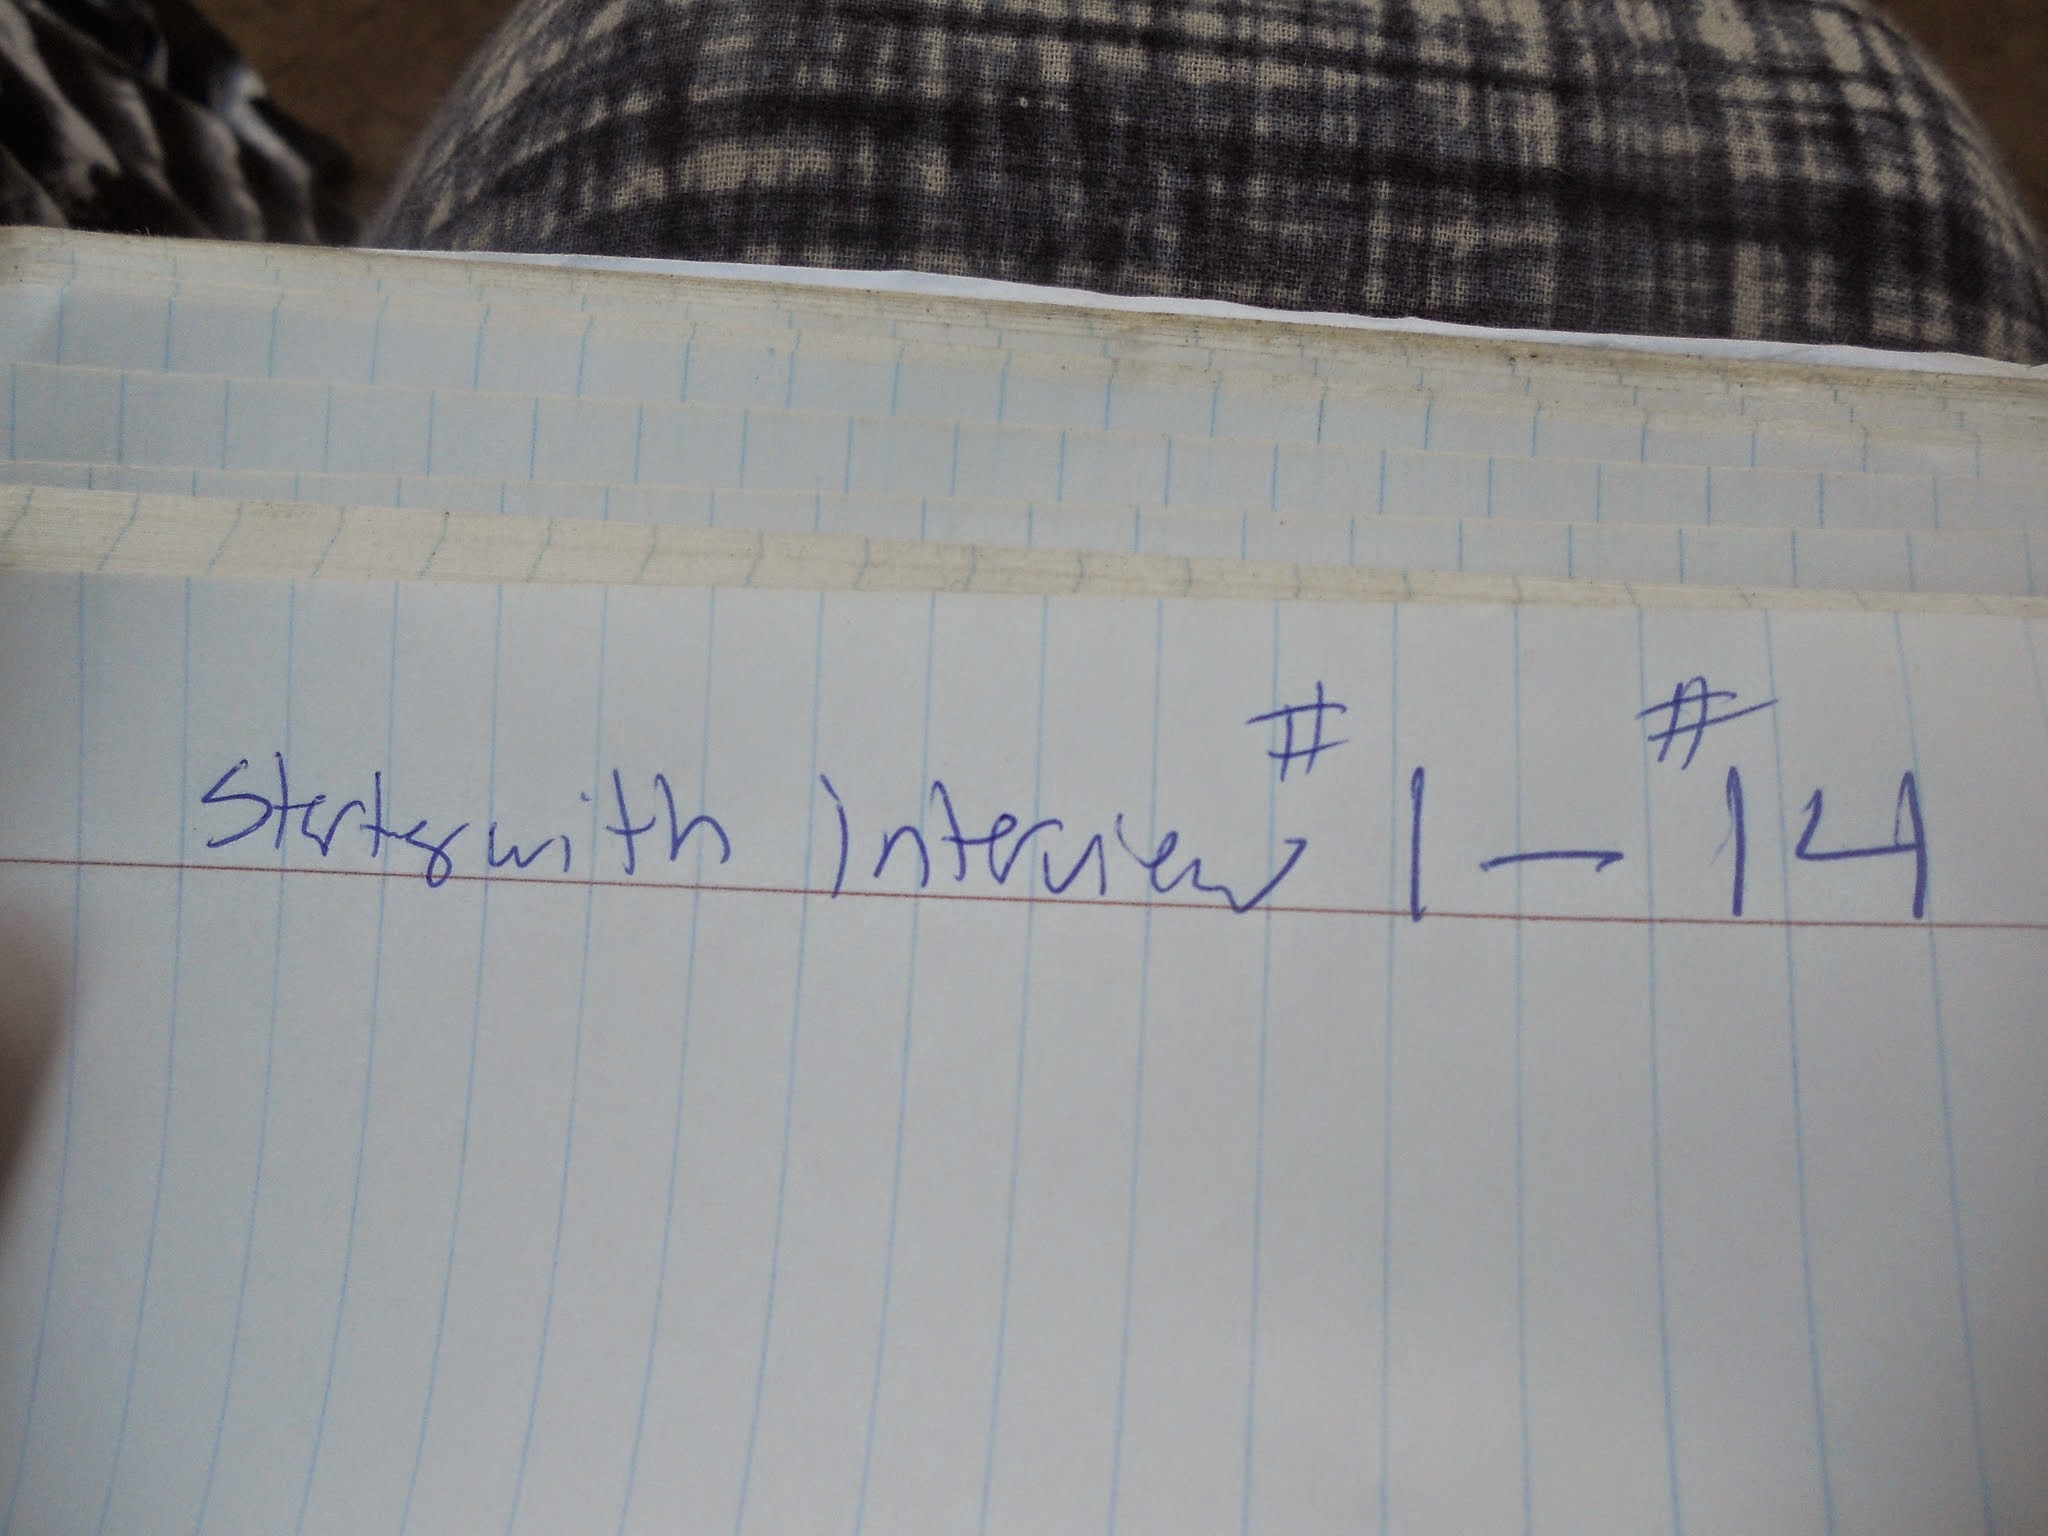 Starts with interview #1 - #14